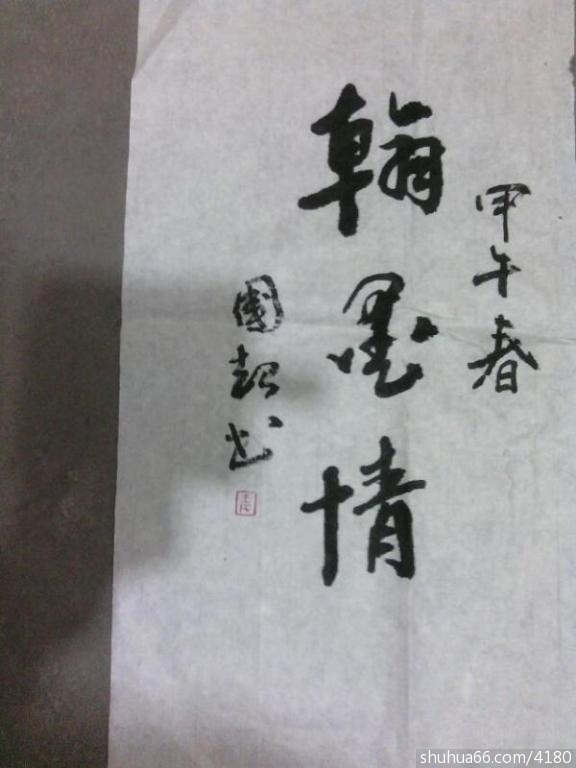 甲午春
翰墨情
國超书
shuhua66.com/4180